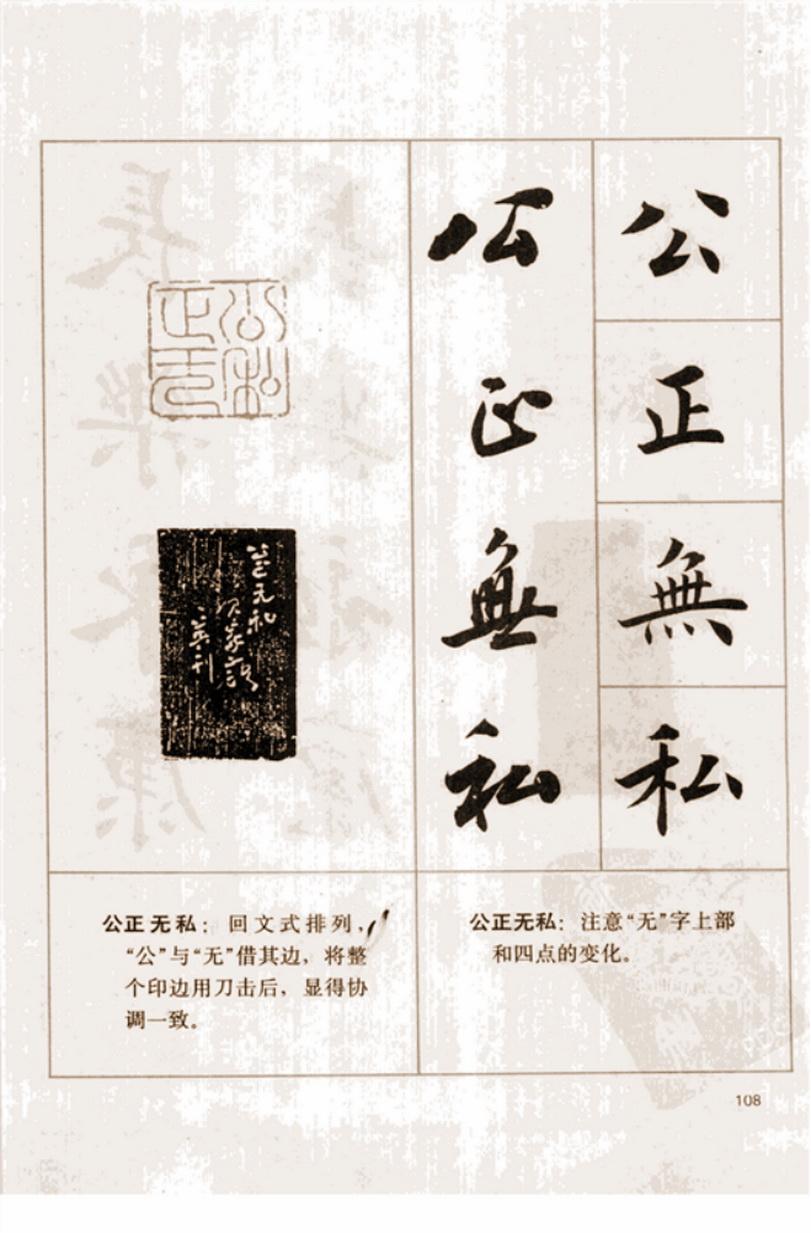 公
正
無
私
公
正
無
私
公私
正无
公正无私：注意“无”字上部
和四点的变化。
公正无私：回文式排列，
“公”与“无”借其边，将整
个印边用刀击后，显得协
调一致。
108